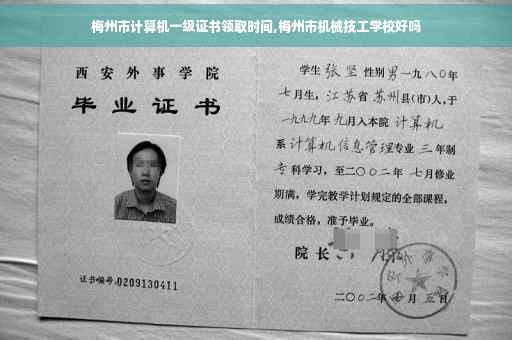 梅州市计算机一级证书领取时间,梅州市机械技工学校好吗
西安外事学院
毕业证书
证书编号:0209130411
学生 张坚 性别 男 一九八〇年
七月生, 江苏省 苏州县(市)人,于
一九九九年 九月入本院 计算机
系 计算机信息管理专业 三 年制
专科学习,至二〇〇二年 七月修业
期满,学完教学计划规定的全部课程,
成绩合格,准予毕业。
院长
二〇〇二年 月 五日